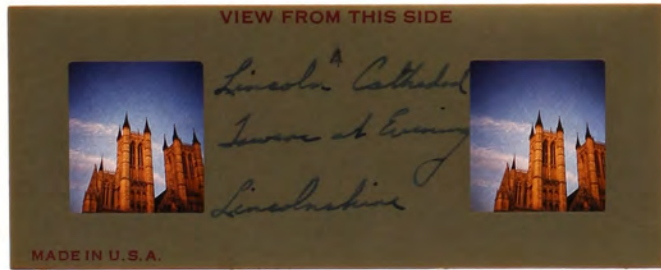 VIEW FROM THIS SIDE
4
Lincoln Cathedral
Towers at Evening
Lincolnshire
MADE IN U.S.A.